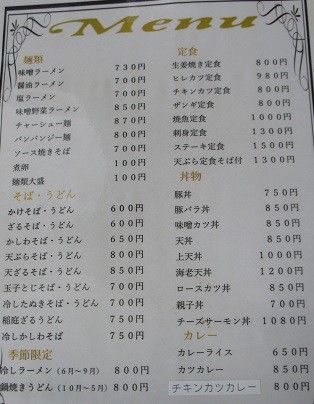 Menu
麺類
味噌ラーメン 730円
醤油ラーメン 700円
塩ラーメン 700円
味噌野菜ラーメン 850円
チャーシュー麺 870円
バンバンジー麺 800円
ソース焼きそば 700円
煮卵 100円
麺類大盛 100円
そば・うどん
かけそば・うどん 600円
ざるそば・うどん 600円
かしわそば・うどん 650円
天ぷらそば・うどん 800円
天ざるそば・うどん 850円
玉子とじそば・うどん 700円
冷したぬきそば・うどん 700円
稲庭ざるうどん 750円
冷しかしわそば 750円
季節限定
冷しラーメン(6月~9月) 800円
鍋焼きうどん(10月~5月) 800円
定食
生姜焼き定食 800円
ヒレカツ定食 980円
チキンカツ定食 800円
ザンギ定食 800円
焼魚定食 1000円
刺身定食 1300円
ステーキ定食 1500円
天ぷら定食そば付 1300円
丼物
豚丼 750円
豚バラ丼 850円
味噌カツ丼 850円
天丼 850円
上天丼 1000円
海老天丼 1200円
ロースカツ丼 850円
親子丼 700円
チーズサーモン丼 1080円
カレー
カレーライス 650円
カツカレー 850円
チキンカツカレー 800円